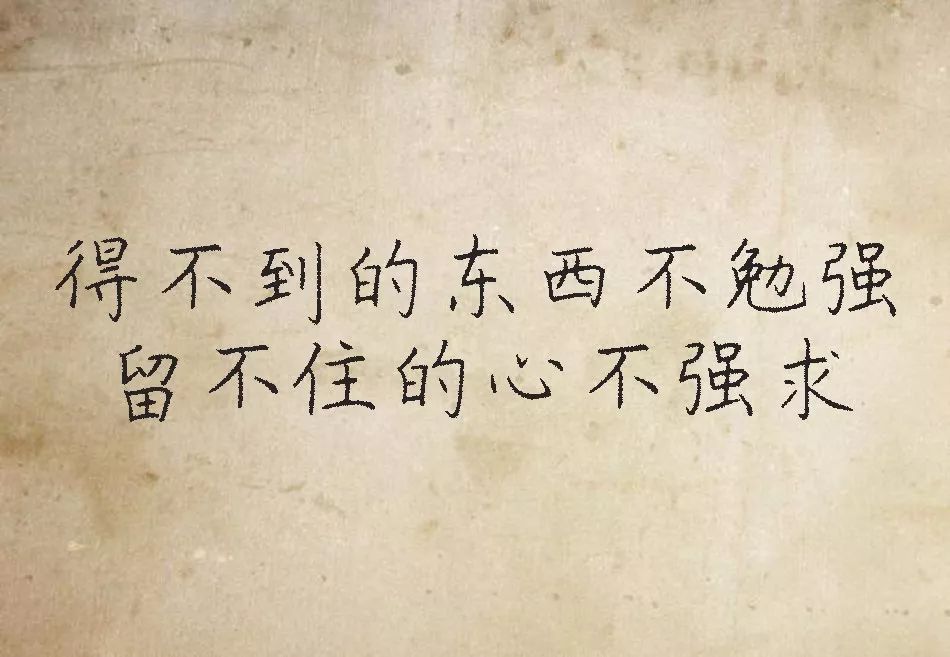 得不到的东西不勉强
留不住的心不强求